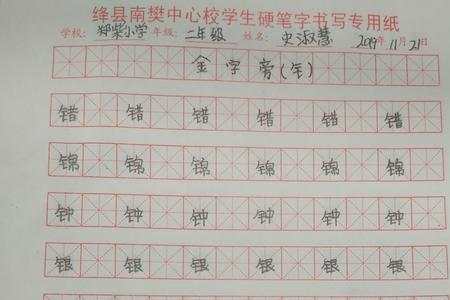 绛县南樊中心校学生硬笔字书写专用纸
学校:郑柴小学 年级:二年级 姓名:史淑慧 2019年11月21日
金字旁(钅)
错 错 错 错 错 错
锦 锦 锦 锦 锦 锦
钟 钟 钟 钟 钟 钟
银 银 银 银 银 银